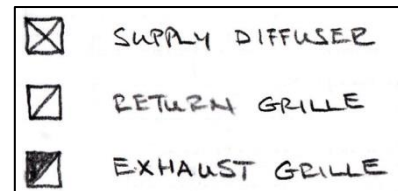 SUPPLY DIFFUSER
RETURN GRILLE
EXHAUST GRILLE